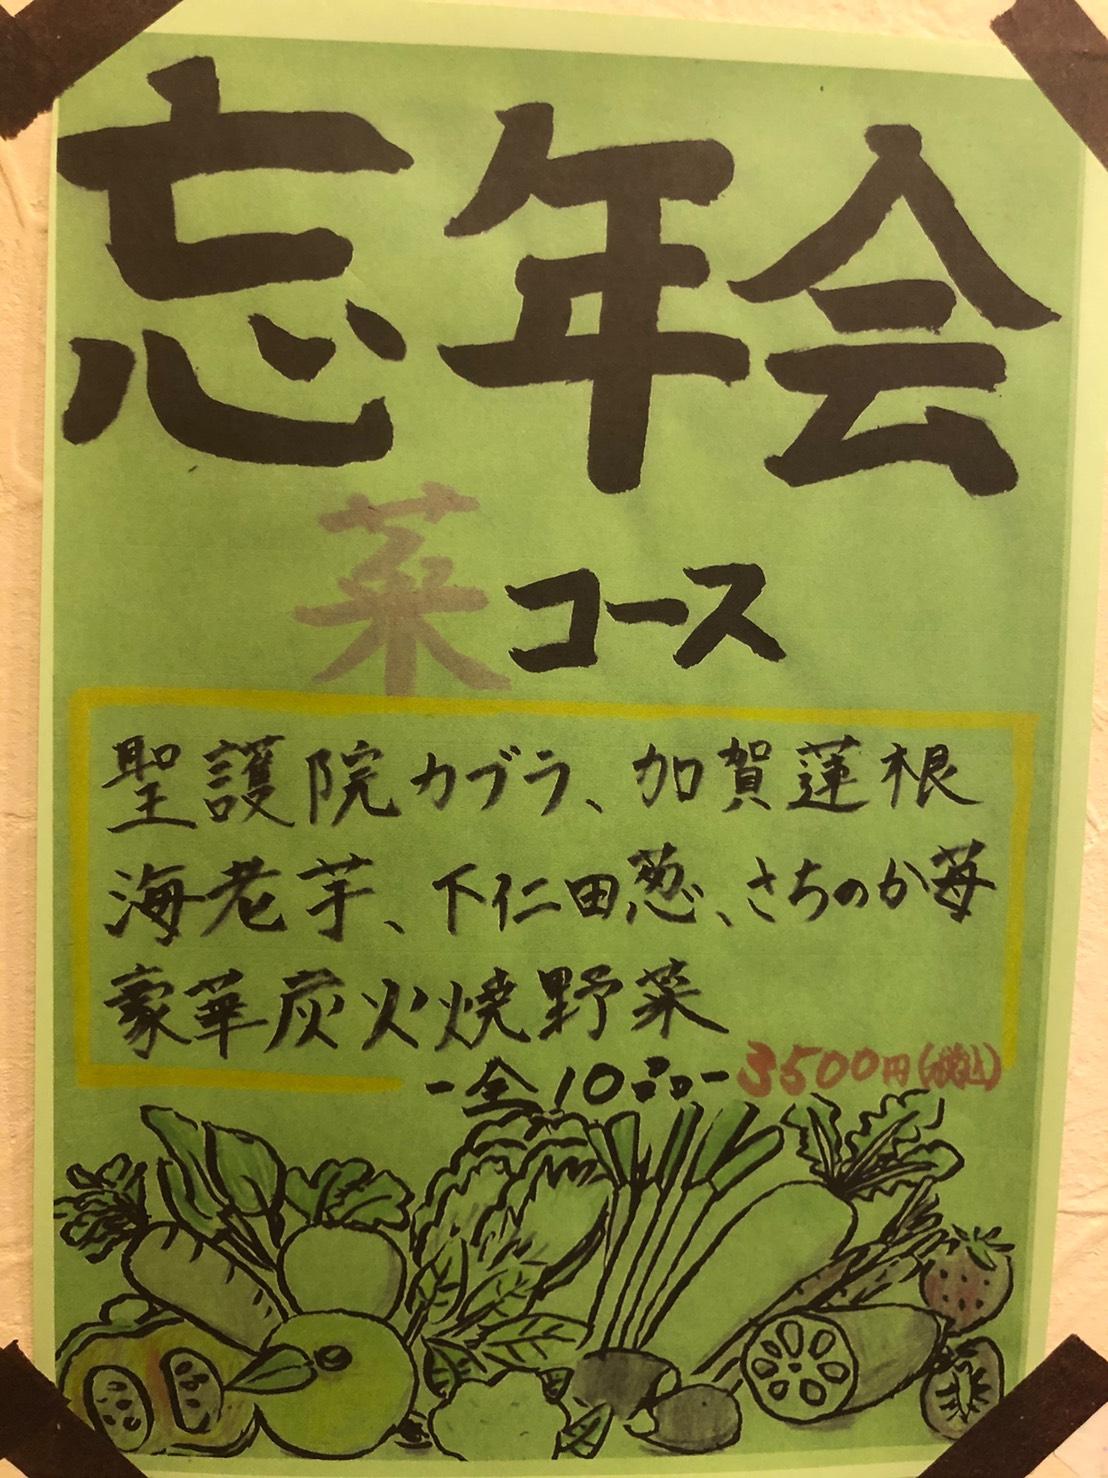 忘年会
菜コース
聖護院カブラ、加賀蓮根
海老芋、下仁田葱、さちのか苺
豪華炭火焼野菜
-全10品- 3500円(税込)